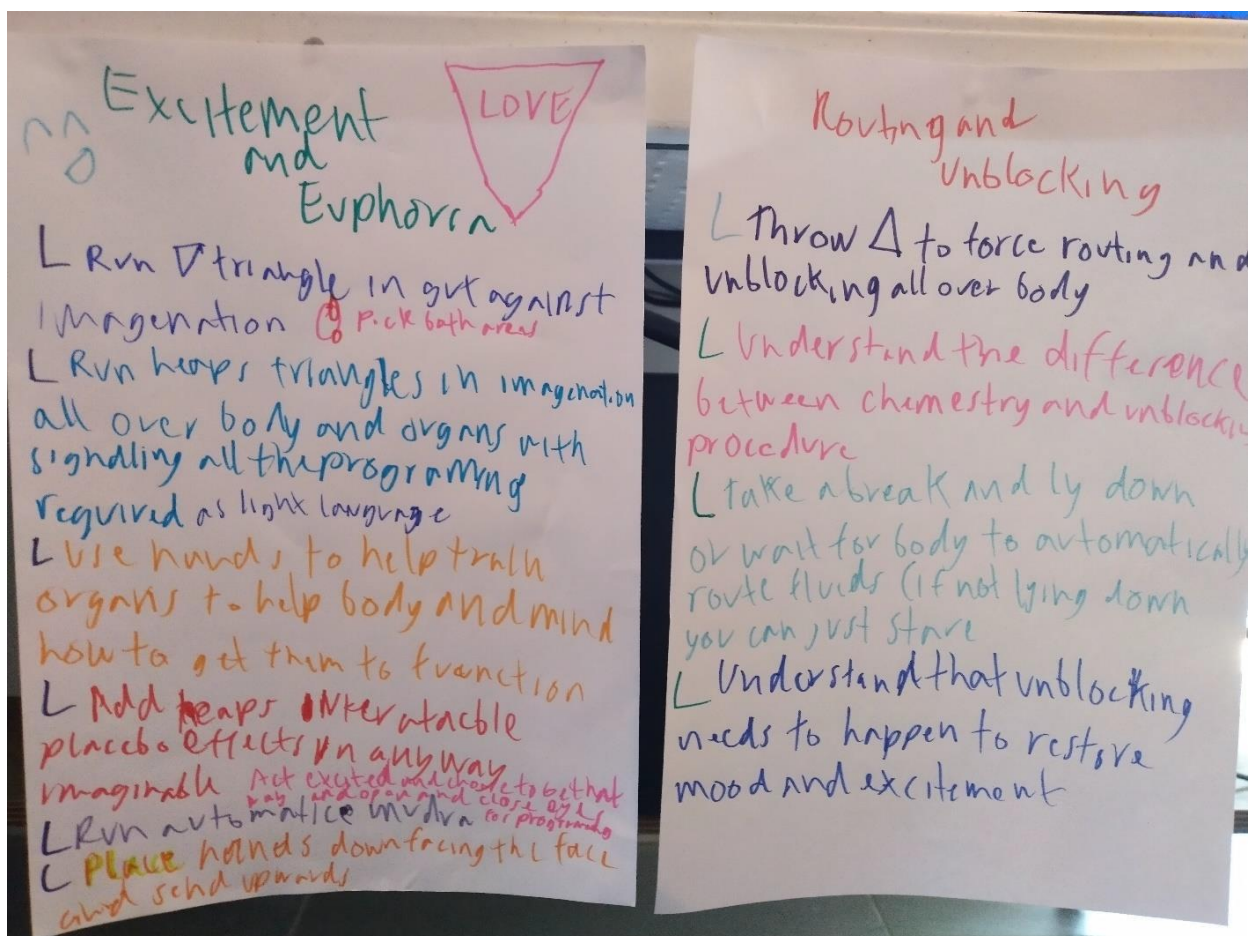 Excitement
and
Euphoria
LOVE
L Run ▽ triangle in gut against
imagenation pick both areas
L Run heaps triangles in imagenation
all over body and organs with
signalling all the programing
required as light language
L Use hands to help train
organs to help body and mind
how to get them to function
L Add heaps
placebo effects in anyway
imaginable Act excited and choose to be that
way and open and close eyes
for programing
L Run automatice mudra
L Place hands down facing the face
and send upwards
Routing and
unblocking
L Throw △ to force routing and
unblocking all over body
L Understand the difference
between chemestry and unblocking
procedure
L take a break and ly down
or wait for body to automatically
route fluids (if not lying down
you can just stare
L Understand that unblocking
needs to happen to restore
mood and excitement